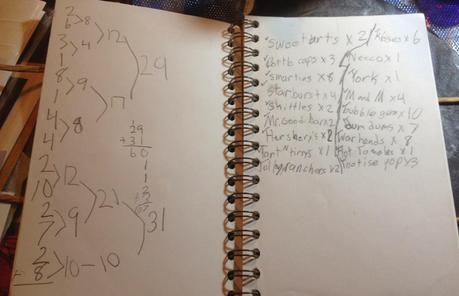 2
6 > 8
12
3
1 > 4
29
8
1 > 9
17
4
4 > 8
29
+31
60
2
10 > 12
21
31
2
7 > 9
2
8 > 10 - 10
Sweetarts x 2 / Kisses x 6
Bottle caps x 3 / Necco x 1
Smarties x 8 / York x 1
Starburst x 4 / M and M x 4
Skittles x 2 / Bubble gum x 10
Mr. Goodbar x 2 / Dum dums x 7
Hershey's x 2 / Warheads x 8
Tart N tinys x 1 / Hot Tamales x 1
Jolly ranchers x 2 / Tootise pop x 3